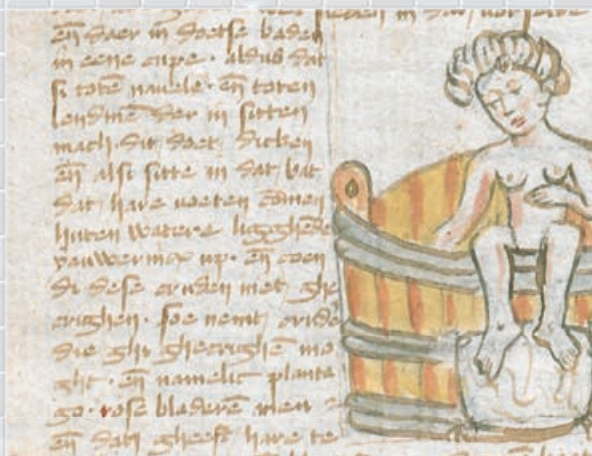 en daer in doetse baden
in eene cupe · aldus dat
si toten navele · en toten
lendinē der in sitten
mach · dit doet dicken
en alsi sitte in dat bat
dat hare voeten comen
buten watere ligghende
en doen
di dese cruden niet ghe
crighen · soe nemt cride
die ghi ghecrighē mo
ght · en namelic plante
go · rose bladerē
en dats gheeft hare te